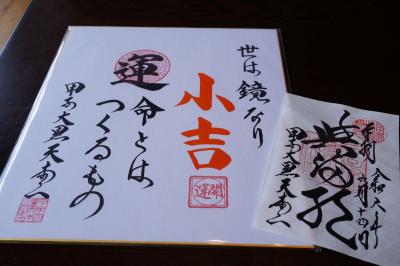 世は鏡なり
小吉
開運
運命とは
つくるもの
甲子大黒天本山
奉拝
令和六年
甲子大黒天本山